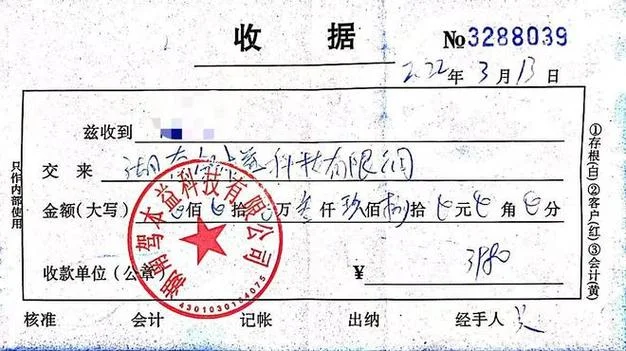 收据 №3288039
2022年3月13日
兹收到
交来 科技有限公司
金额(大写) 佰 拾 万叁仟玖佰捌拾 元 角 分
收款单位(公章 ¥ 3980
核准 会计 记帐 出纳 经手人
只作内部使用
①存根(白)②客户(红)③会计(黄)
湖南驾本益科技有限公司
4301030164075